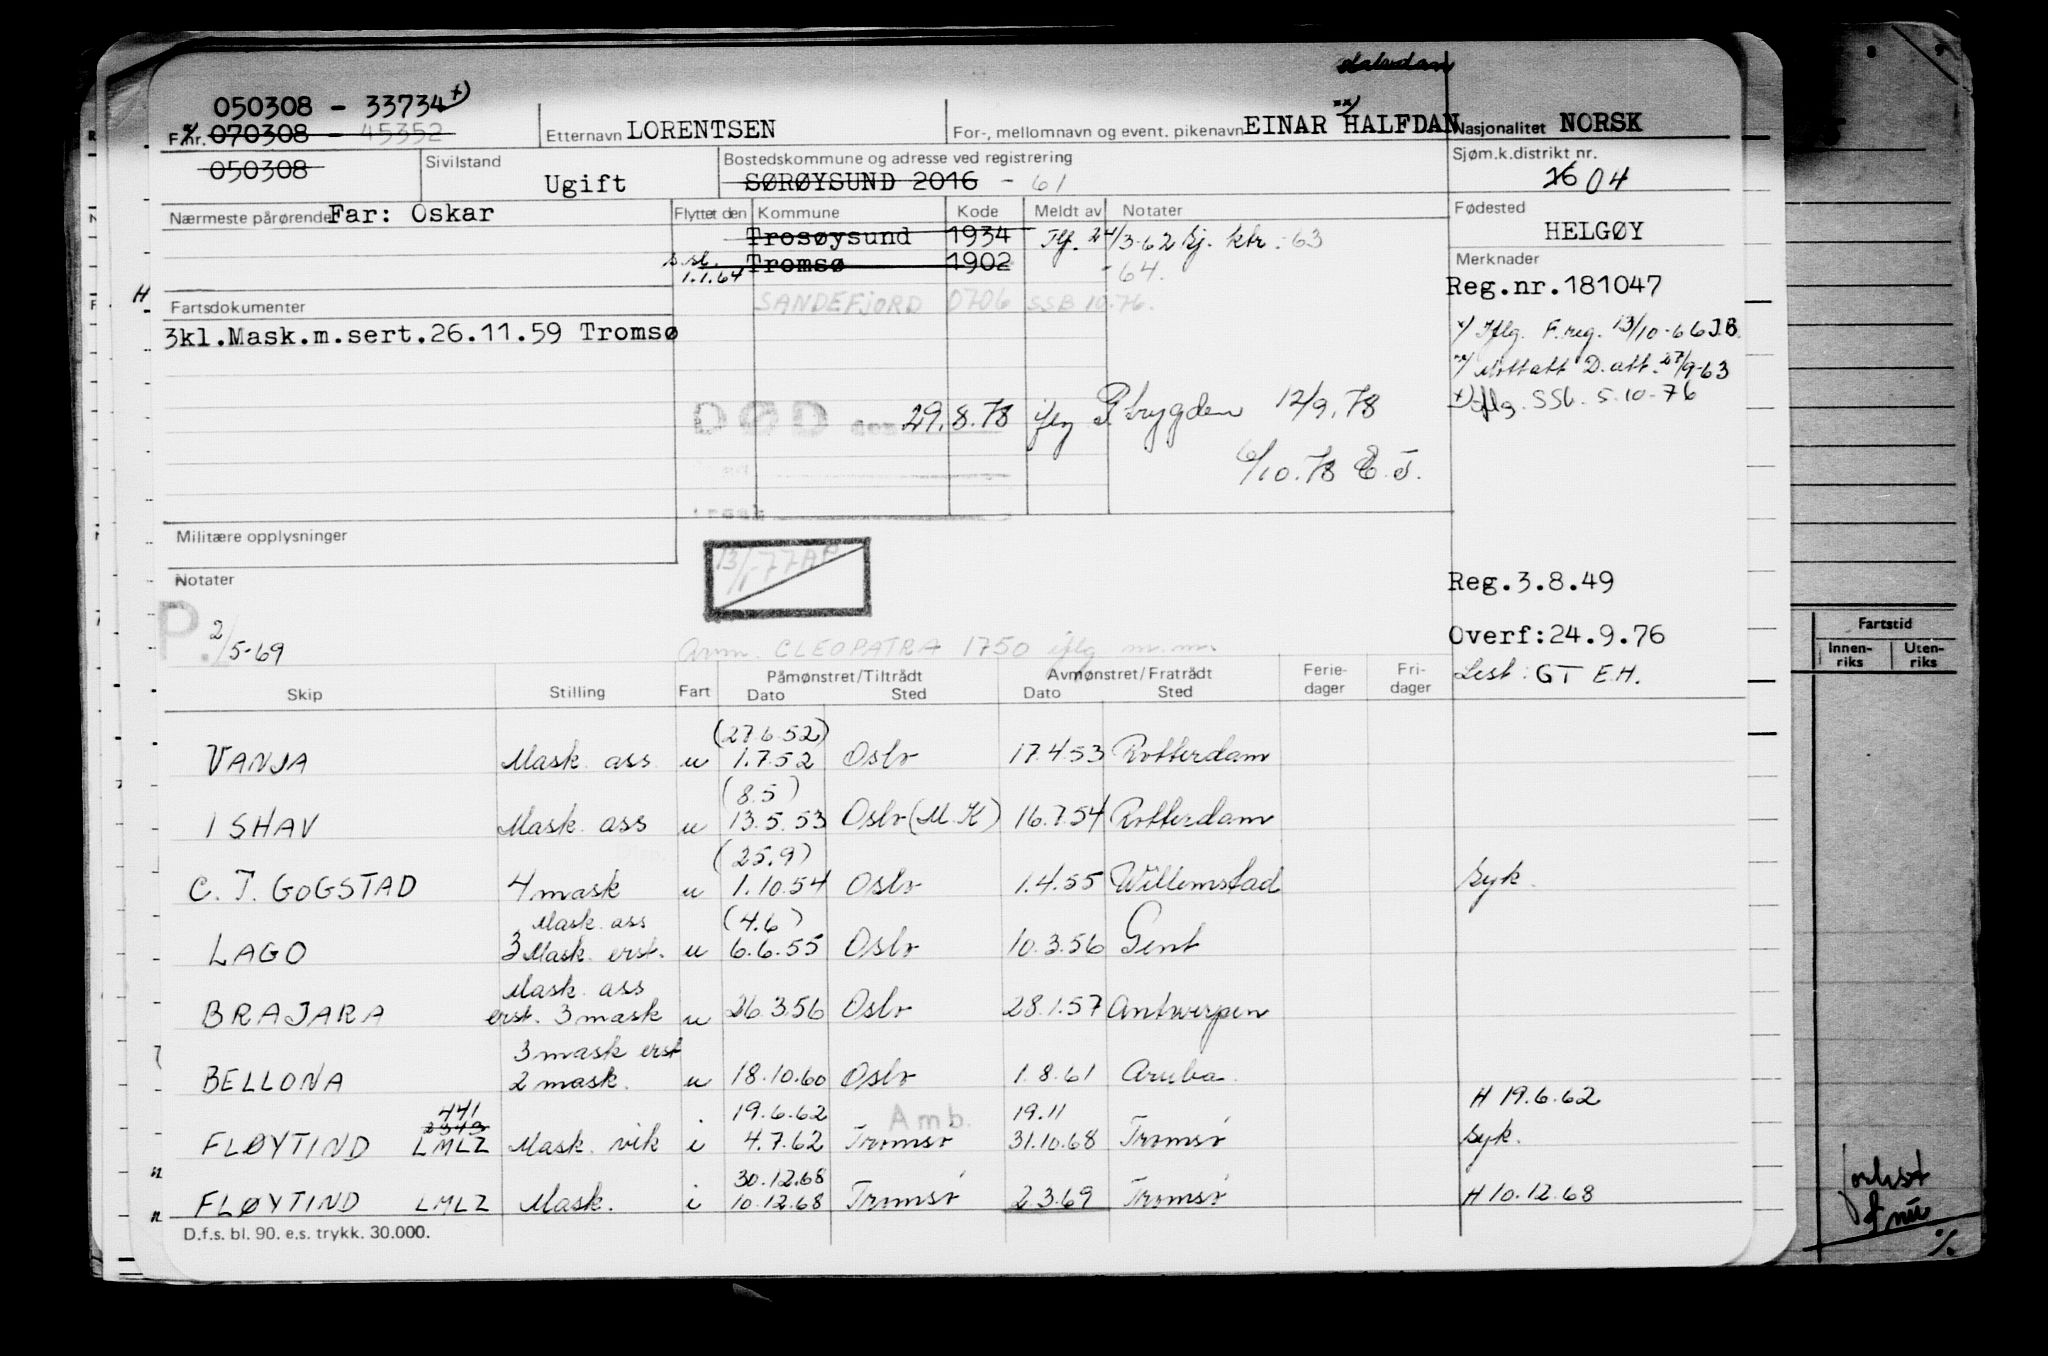 Halvdan
050308 - 33734 x)
F.nr. 070308 - 45352 Etternavn LORENTSEN For-, mellomnavn og event. pikenavn EINAR HALFDAN xx) Nasjonalitet NORSK
050308 Sivilstand Ugift Bostedskommune og adresse ved registrering SØRØYSUND 2016 - 61 Sjøm.k.distrikt nr. 16 04
Nærmeste pårørende Far: Oskar Flyttet den Kommune Kode Meldt av Notater Fødested HELGØY
Trosøysund 1934 Tlf. 24/3-62 Sj. ktr. -63
1.1.64 Tromsø 1902 -64. Merknader
SANDEFJORD 0706 SSB 10.76. Reg.nr.181047
Fartsdokumenter
3kl.Mask.m.sert.26.11.59 Tromsø
x) Iflg. F.reg. 13/10-66 J.B.
xx) Mottatt D.att. 27/9-63
x) Iflg. SSb. 5.10-76
DØD den 29.8.78 iflg P.trygden 12/9.78
6/10.78 E.J.
Militære opplysninger
13/1-77 AP
Notater Reg.3.8.49
P. 2/5-69 Overf:24.9.76
Anm. CLEOPATRA 1750 iflg m.m. Lest: GT E.H.
Skip Stilling Fart Påmønstret/Tiltrådt Dato Sted Avmønstret/Fratrådt Dato Sted Ferie-dager Fri-dager
(27.6.52)
VANJA Mask. ass u 1.7.52 Oslo 17.4.53 Rotterdam
(8.5)
ISHAV Mask. ass u 13.5.53 Oslo (M.K) 16.7.54 Rotterdam
(25.9)
C. T. GOGSTAD 4 mask u 1.10.54 Oslo 1.4.55 Willemstad syk.
Mask. ass (4.6)
LAGO 3 Mask. erst. u 6.6.55 Oslo 10.3.56 Gent
Mask. ass
BRAJARA erst. 3 mask u 26.3.56 Oslo 28.1.57 Antwerpen
3 mask erst
BELLONA 2 mask. u 18.10.60 Oslo 1.8.61 Aruba
441 2343 19.6.62 Amb. 19.11 H 19.6.62
FLØYTIND LMLZ Mask. vik i 4.7.62 Tromsø 31.10.68 Tromsø syk.
30.12.68
FLØYTIND LMLZ Mask. i 10.12.68 Tromsø 2.3.69 Tromsø H 10.12.68
D.f.s. bl. 90. e.s. trykk. 30.000.
Fartstid
Innen-riks Uten-riks